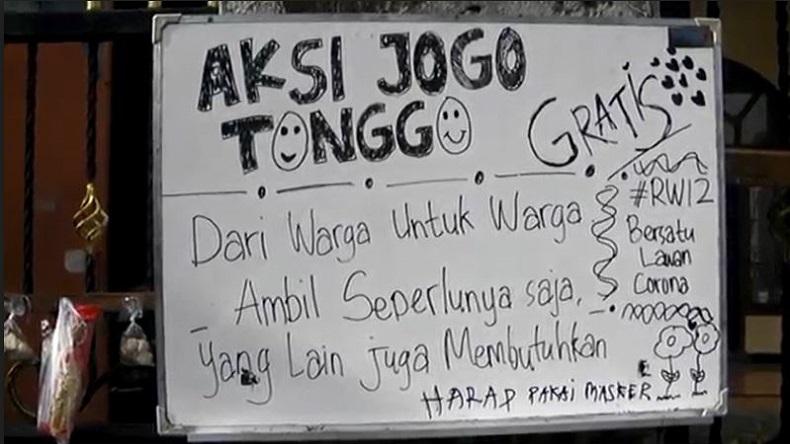 AKSI JOGO
TONGGO
GRATIS
Dari Warga Untuk Warga
Ambil Seperlunya saja,
yang Lain juga Membutuhkan
HARAP PAKAI MASKER
#RW12
Bersatu
Lawan
Corona